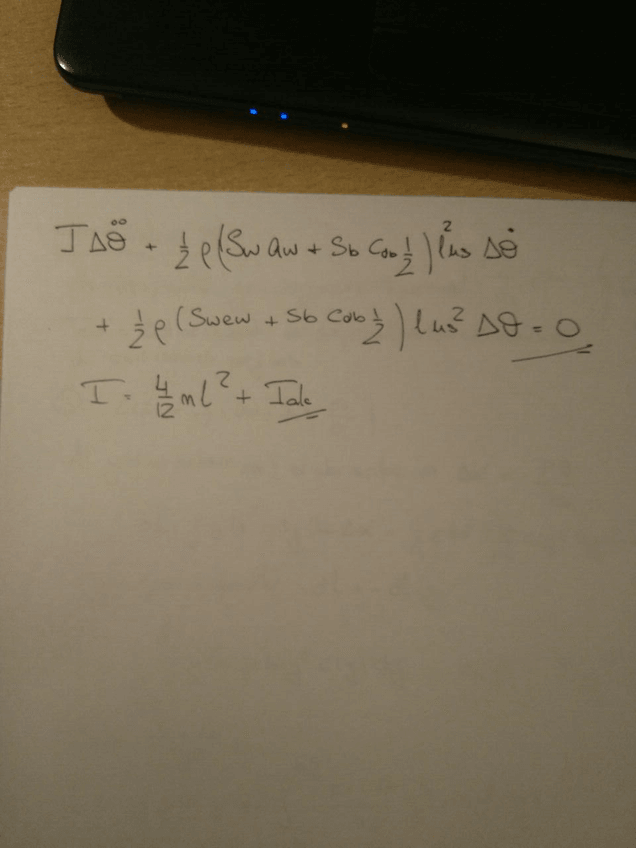 I Δθ̈ + ½ ρ(Sw aw + Sb Cdb ½) l² us Δθ̇
+ ½ ρ(Sw ew + Sb Cdb ½) l us² Δθ = 0
I = 4/12 ml² +